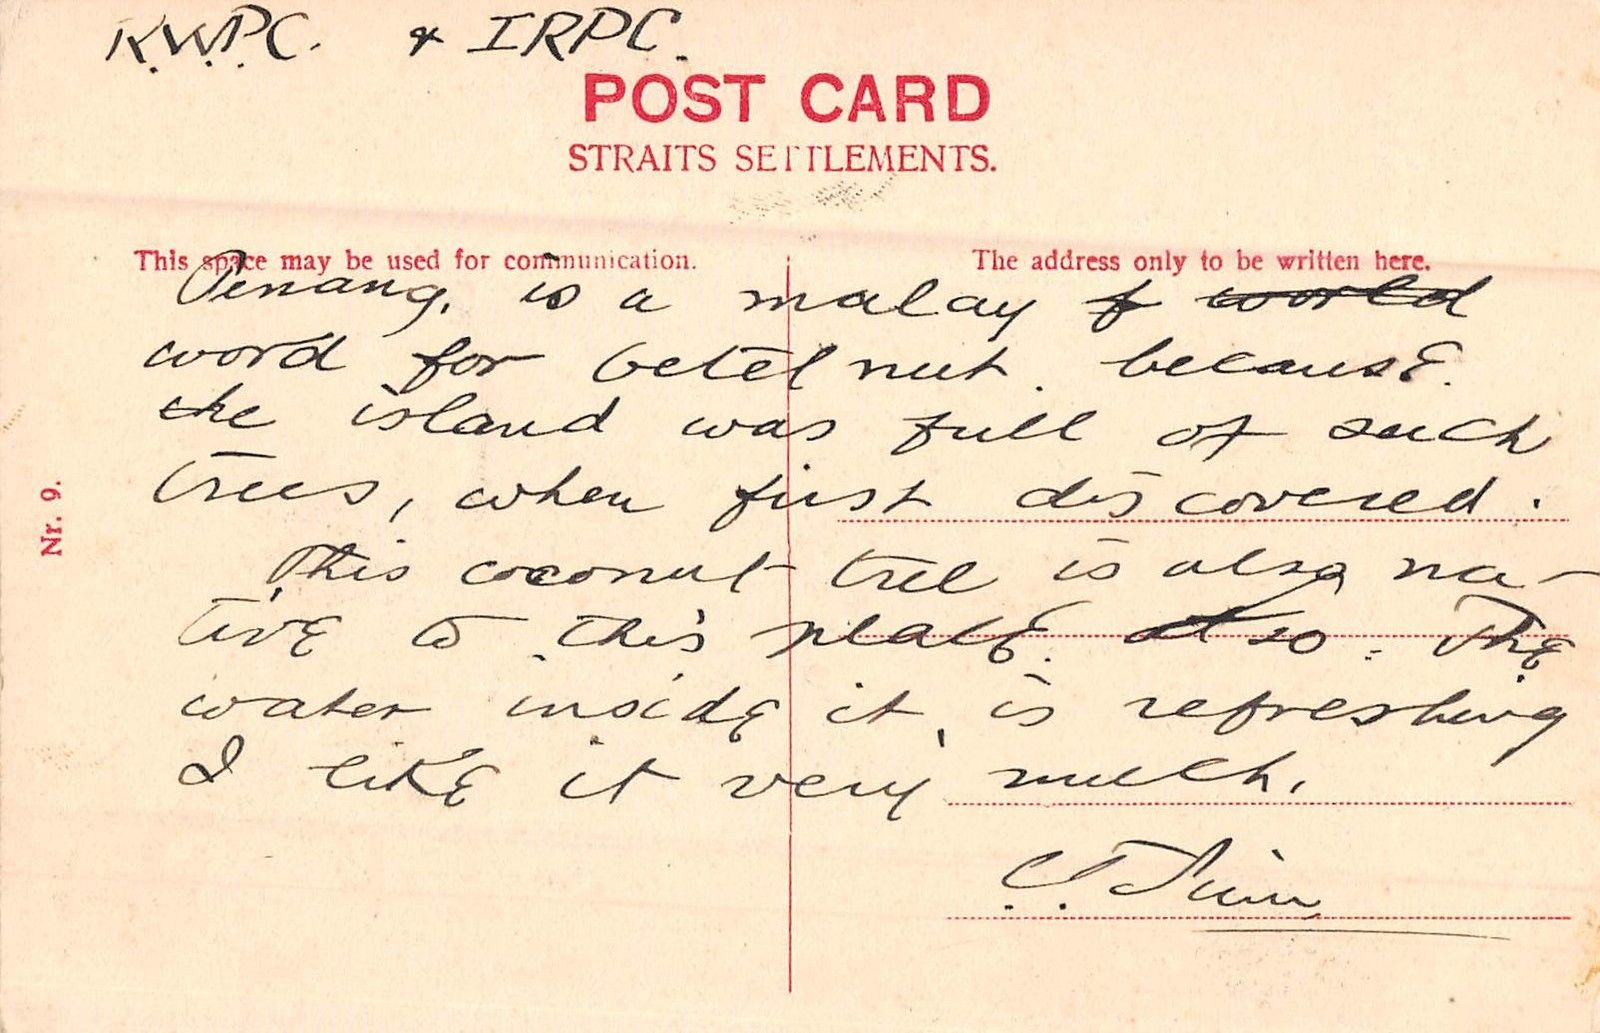 K.W.P.C. & IRPC.
POST CARD
STRAITS SETTLEMENTS.
This space may be used for communication.
The address only to be written here.
Penang, is a malay f world
word for betel nut. because
the island was full of such
trees, when first discovered.
Nr. 9.
This coconut tree is also na-
tive to this place. also. The
water inside it, is refreshing
I like it very much.
C. T.